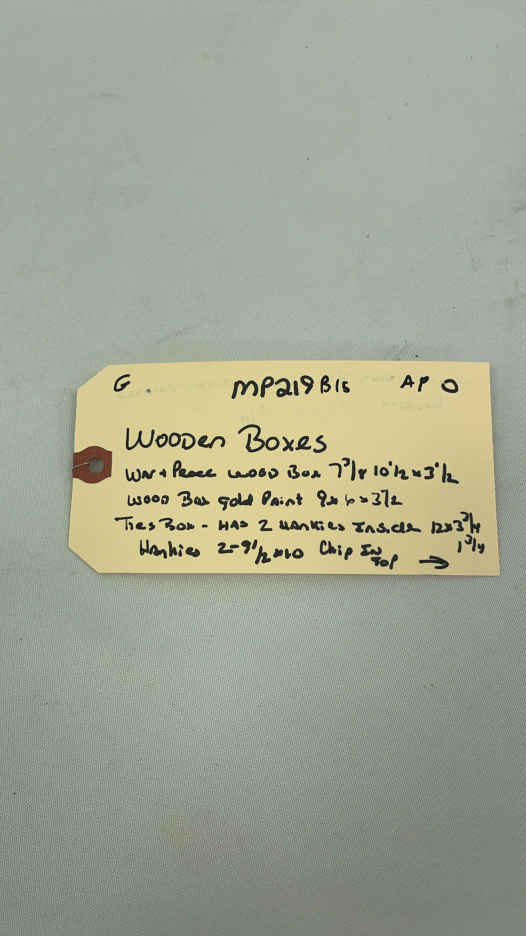 G. MP219B15 AP O
Wooden Boxes
War + Peace Wood Box 7 3/8 10 1/2 x 3 1/2
Wood Box Gold Paint 9x6x3 1/2
Ties Box - Has 2 Hankies Inside 12x3 3/4
Hankies 2-9 1/2 x10 Chip In Top → 1 3/4